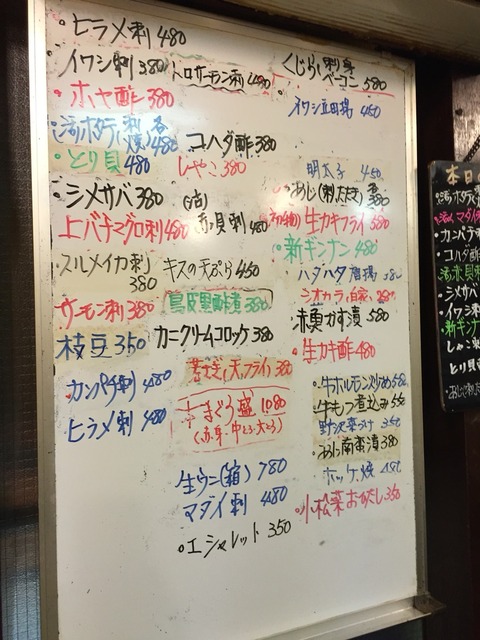 ・ヒラメ刺 480
・イワシ刺 380
・ホヤ酢 380
・活ホタテ(刺 焼) 各480
・とり貝 480
・シメサバ 380
・上バチマグロ刺 480
・スルメイカ刺 380
サーモン刺 380
枝豆 350
・カンパチ刺 480
・ヒラメ刺 480
トロサーモン刺 480
コハダ酢 380
しゃこ 380
(活)赤貝刺 480
キスの天ぷら 450
鳥皮黒酢漬 380
カニクリームコロッケ 380
まぐろ盛 1080
(赤身・中とろ・大とろ)
生ウニ(箱) 780
マダイ刺 480
・エシャレット 350
くじら(刺身 ベーコン) 580
イワシ立田揚 450
明太子 450
あじ(刺 たたき 酢) 380
生カキフライ 580
・新ギンナン 480
ハタハタ唐揚
シオカラ(自家) 280
・赤魚かす漬 580
・生カキ酢 480
・牛ホルモン炒め 550
・牛もつ煮込み 550
野沢菜づけ 350
あじ南蛮漬 380
ホッケ焼
・小松菜おひたし 350
本日の
・活ホタテ
・活〆マダイ
・カンパチ
・コハダ酢
・活赤貝刺
・シメサバ
・イワシ刺
・新ギン
・しゃこ
・とり貝